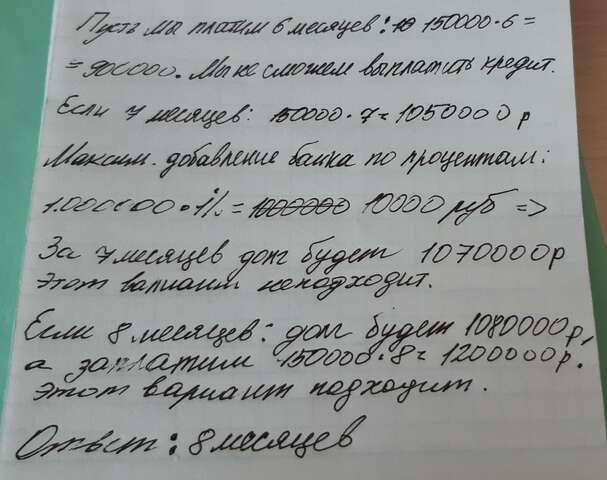 Пусть мы платим 6 месяцев: 150000·6=
=900000. Мы не сможем выплатить кредит.
Если 7 месяцев: 150000·7=1050000 р
Максим. добавление банка по процентам:
1.000000·1%= 1000000 10000 руб =>
За 7 месяцев долг будет 1070000р
Этот вариант неподходит.
Если 8 месяцев: долг будет 1080000р,
а заплатим 150000·8=1200000р.
Этот вариант подходит.
Ответ: 8 месяцев